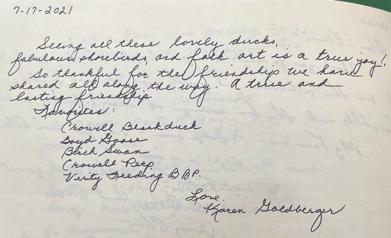 7-17-2021
Seeing all these lovely ducks,
fabulous shorebirds, and folk art is a true joy!
So thankful for the friendship we have
shared all along the way. A true and
lasting friendship
Favorites:
Crowell Blackduck
Boyd Goose
Birch Swan
Crowell Peep
Verity Feeding BBP.
Love,
Karen Goldberger